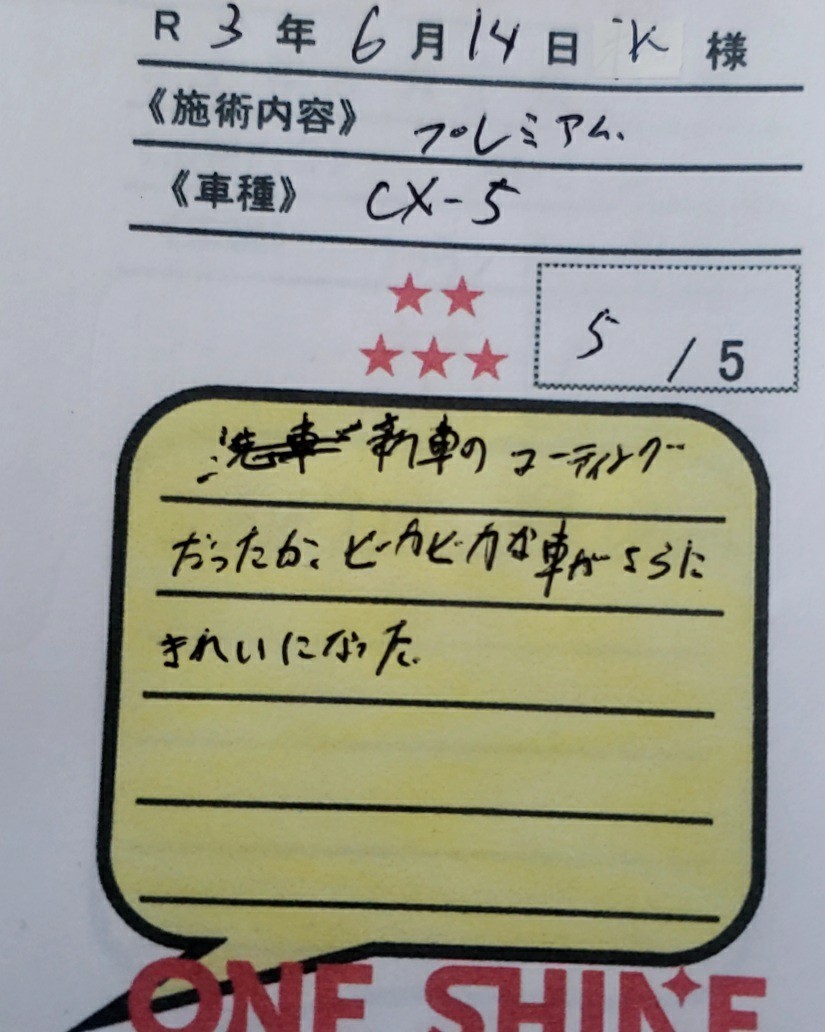 R 3 年 6 月 14 日 K 様
《施術内容》 プレミアム.
《車種》 CX-5
5 / 5
新車のコーティング
だったが、ピカピカな車がさらに
きれいになった.
ONE SHINE